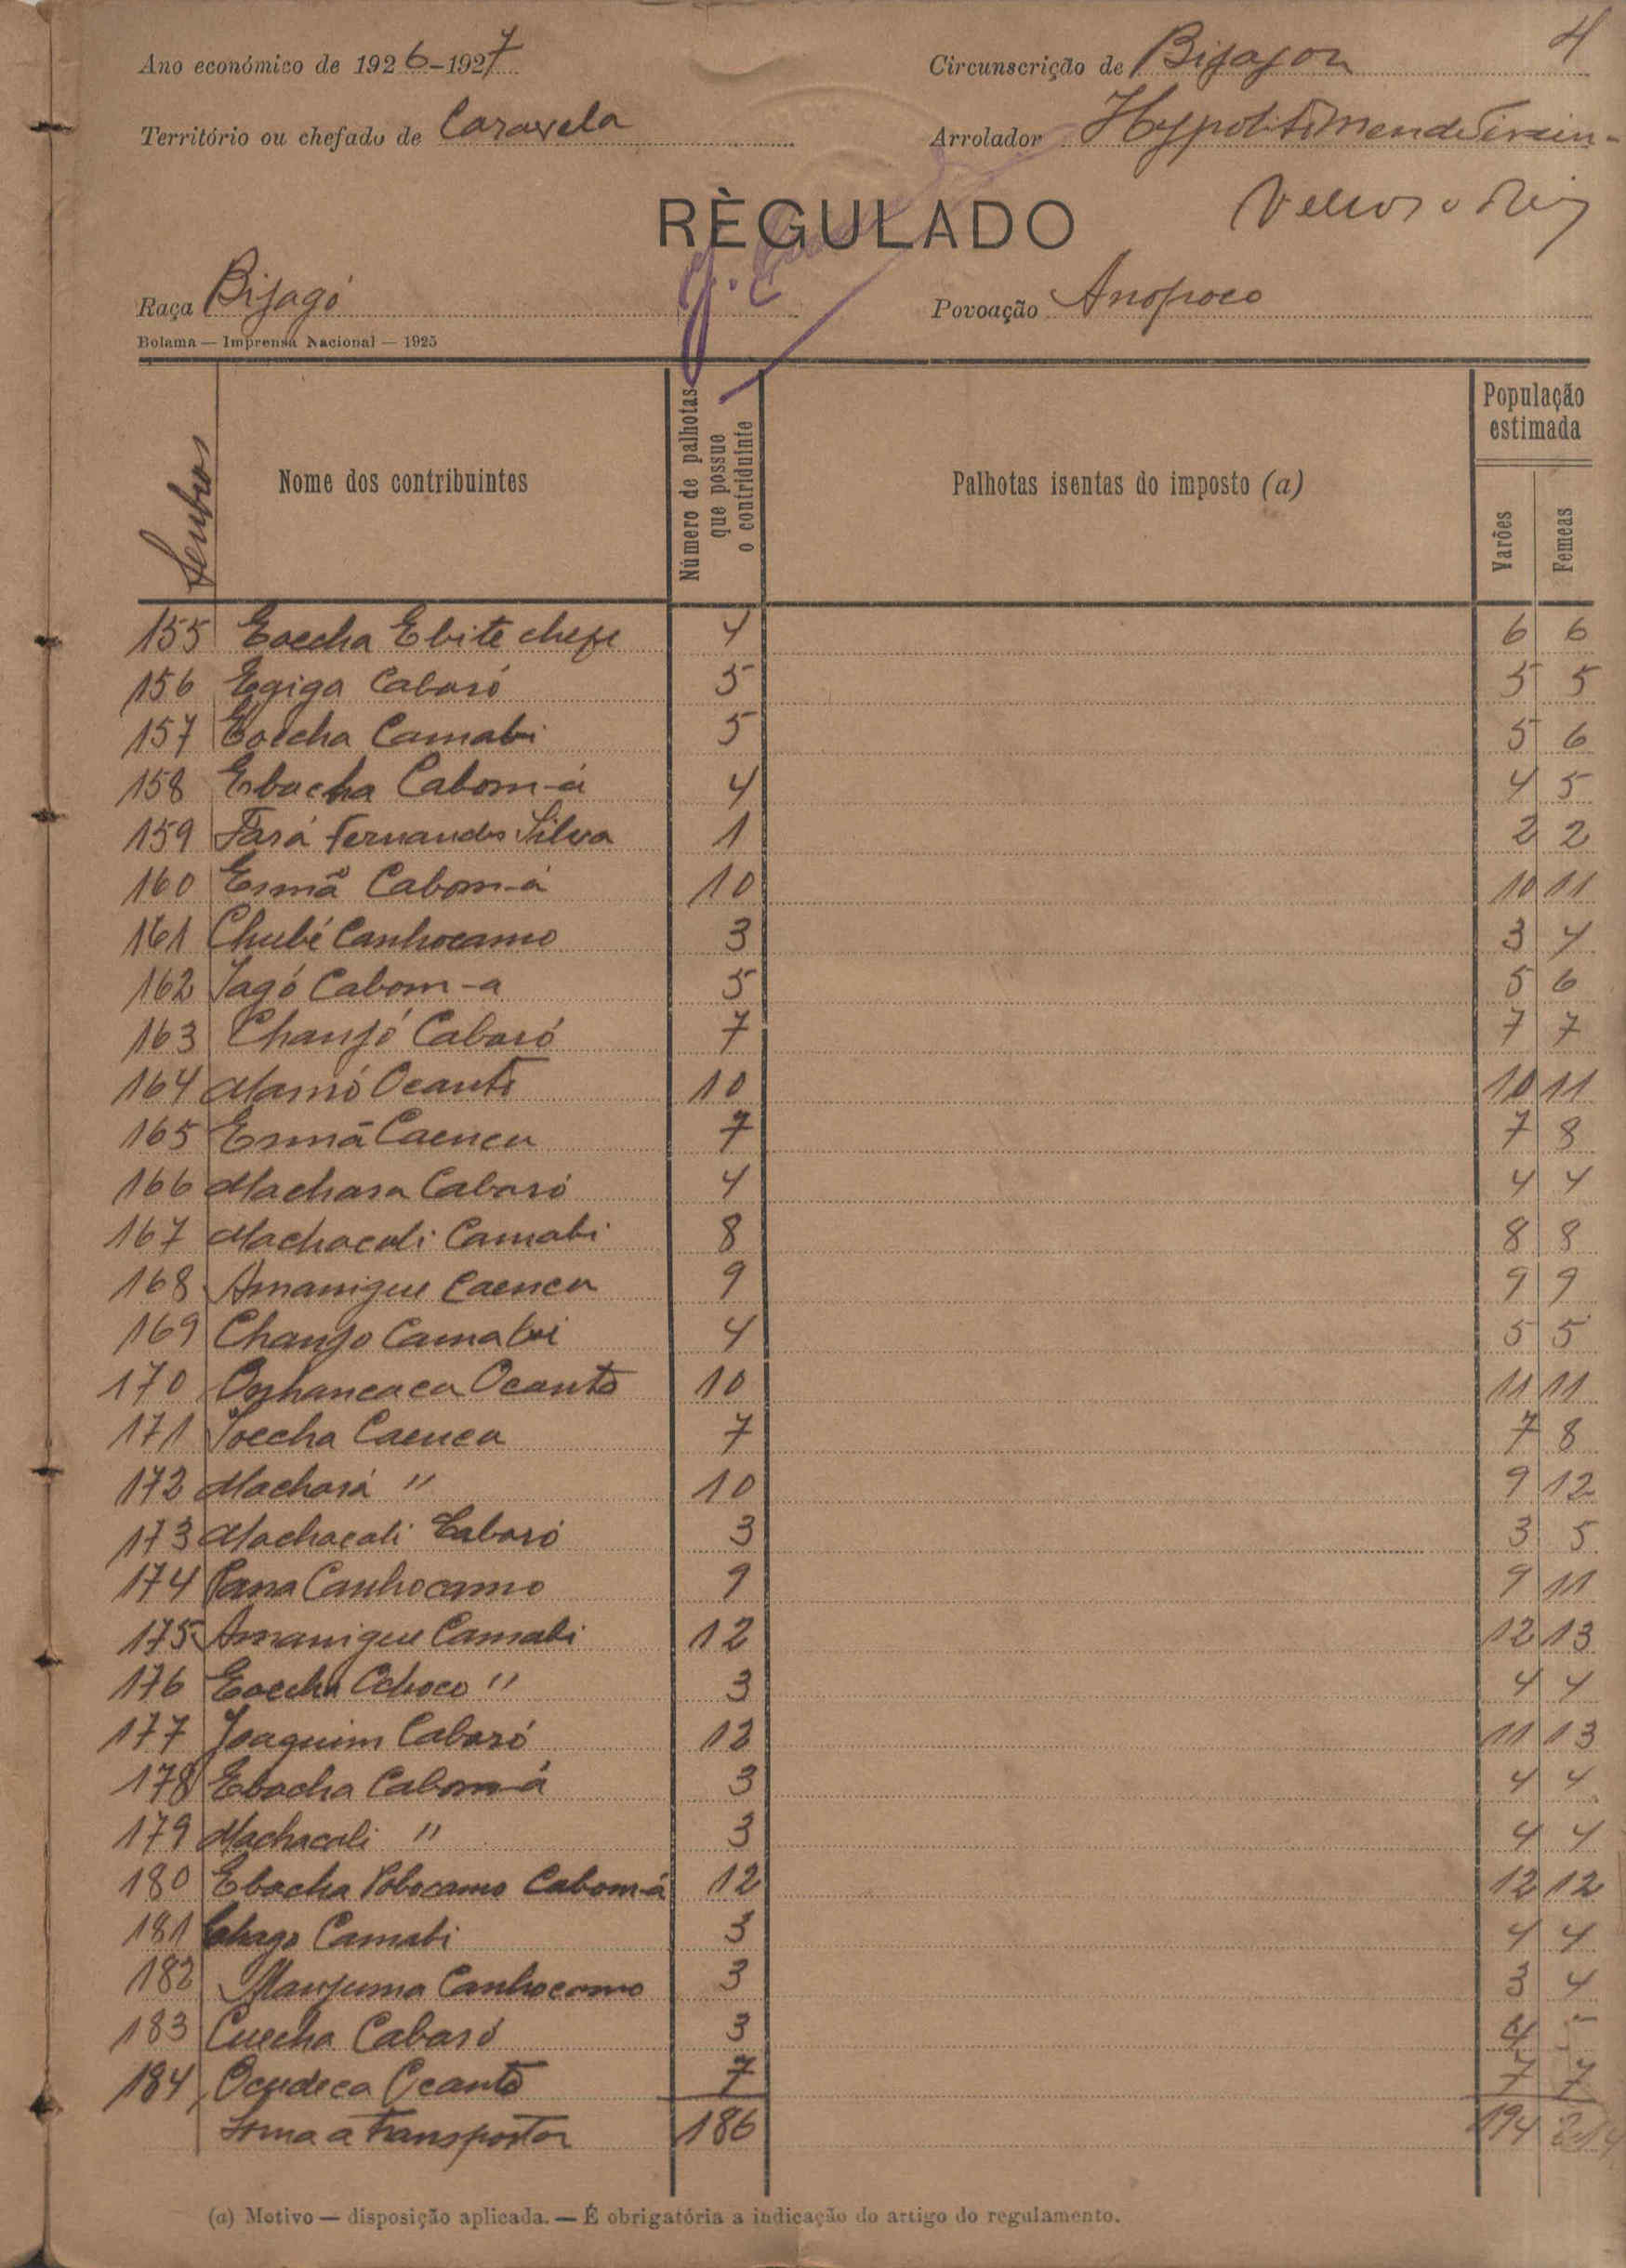 4
Ano económico de 1926-1927 Circunscrição de Bijagoz
Território ou chefado de Caravela Arrolador Hypolito Mendes
RÈGULADO
Raça Bijagó Povoação Anopoco
Bolama — Imprensa Nacional — 1925
Nome dos contribuintes Número de palhotas que possue o contriduinte Palhotas isentas do imposto (a) População estimada Varões Femeas
155 Eoecha Ebite chefe 4 6 6
156 Egiga Cabaró 5 5 5
157 Eoecha Camabi 5 5 6
158 Ebacha Cabom-á 4 4 5
159 Fará Fernandes Silva 1 2 2
160 Esmã Cabom-á 10 10 11
161 Chubé Canhocamo 3 3 4
162 Jagó Cabom-a 5 5 6
163 Chanjó Cabaró 7 7 7
164 Mamó Ocanto 10 10 11
165 Esmã Caenca 7 7 8
166 Machara Cabaró 4 4 4
167 Machacali Camabi 8 8 8
168 Amanigue Caenca 9 9 9
169 Chanjo Camabi 4 5 5
170 Ocanto 10 11 11
171 Joecha Caenca 7 7 8
172 Machará " 10 9 12
173 Machacali Cabaró 3 3 5
174 Pana Canhocamo 9 9 11
175 Amanigue Camabi 12 12 13
176 Eoecha Ochoco " 3 4 4
177 Joaquim Cabaró 12 11 13
178 Ebacha Cabom-á 3 4 4
179 Machacali " 3 4 4
180 Ebacha Pobocamo Cabom-á 12 12 12
181 Chago Camabi 3 4 4
182 Manjuma Canhocamo 3 3 4
183 Cuecha Cabaró 3 4
184 Ocudeca Ocanto 7 7 7
Soma a transportar 186 194 214
(a) Motivo — disposição aplicada. — É obrigatória a indicação do artigo do regulamento.